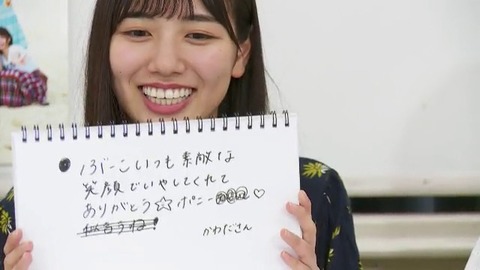 ぷーこいつも素敵な
笑顔でいやしてくれて
ありがとう☆ポニー♡
似合うね!
かわださん